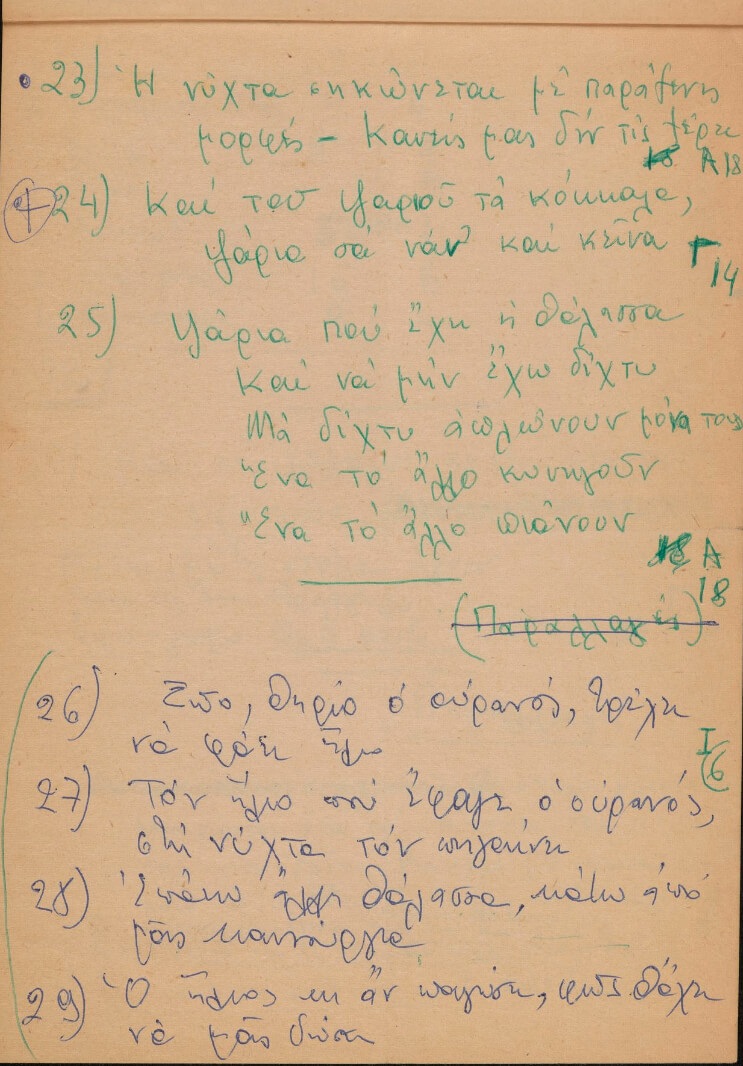 23) Ἡ νύχτα σηκώνεται μὲ παράξενες
μορφές – Κανείς μας δὲν τὶς ξέρει
Α 18
24) Καὶ τοῦ ψαριοῦ τὰ κόκκαλα,
ψάρια σὰ νἆν' καὶ κεῖνα Γ
14
25) Ψάρια ποὺ ἔχει ἡ θάλασσα
Καὶ νὰ μὴν ἔχω δίχτυ
Μὰ δίχτυ ἁπλώνουν μόνα τους
Ἕνα τὸ ἄλλο κυνηγοῦν
Ἕνα τὸ ἄλλο πιάνουν
Α
18
(Παραλλαγές)
26) ὁ οὐρανός, τρέχει
νὰ φάει ἥλιο
Ι
6
27) Τὸν ἥλιο ποὺ ἔφαγε ὁ οὐρανός,
στὴ νύχτα τὸν πηγαίνει
28) Ἐπάνω ἄλλη θάλασσα, κάτω ἀπὸ
μᾶς καινούργια
29) Ὁ ἥλιος κι ἂν παγώσει, φῶς θἄχει
νὰ μᾶς δώσει